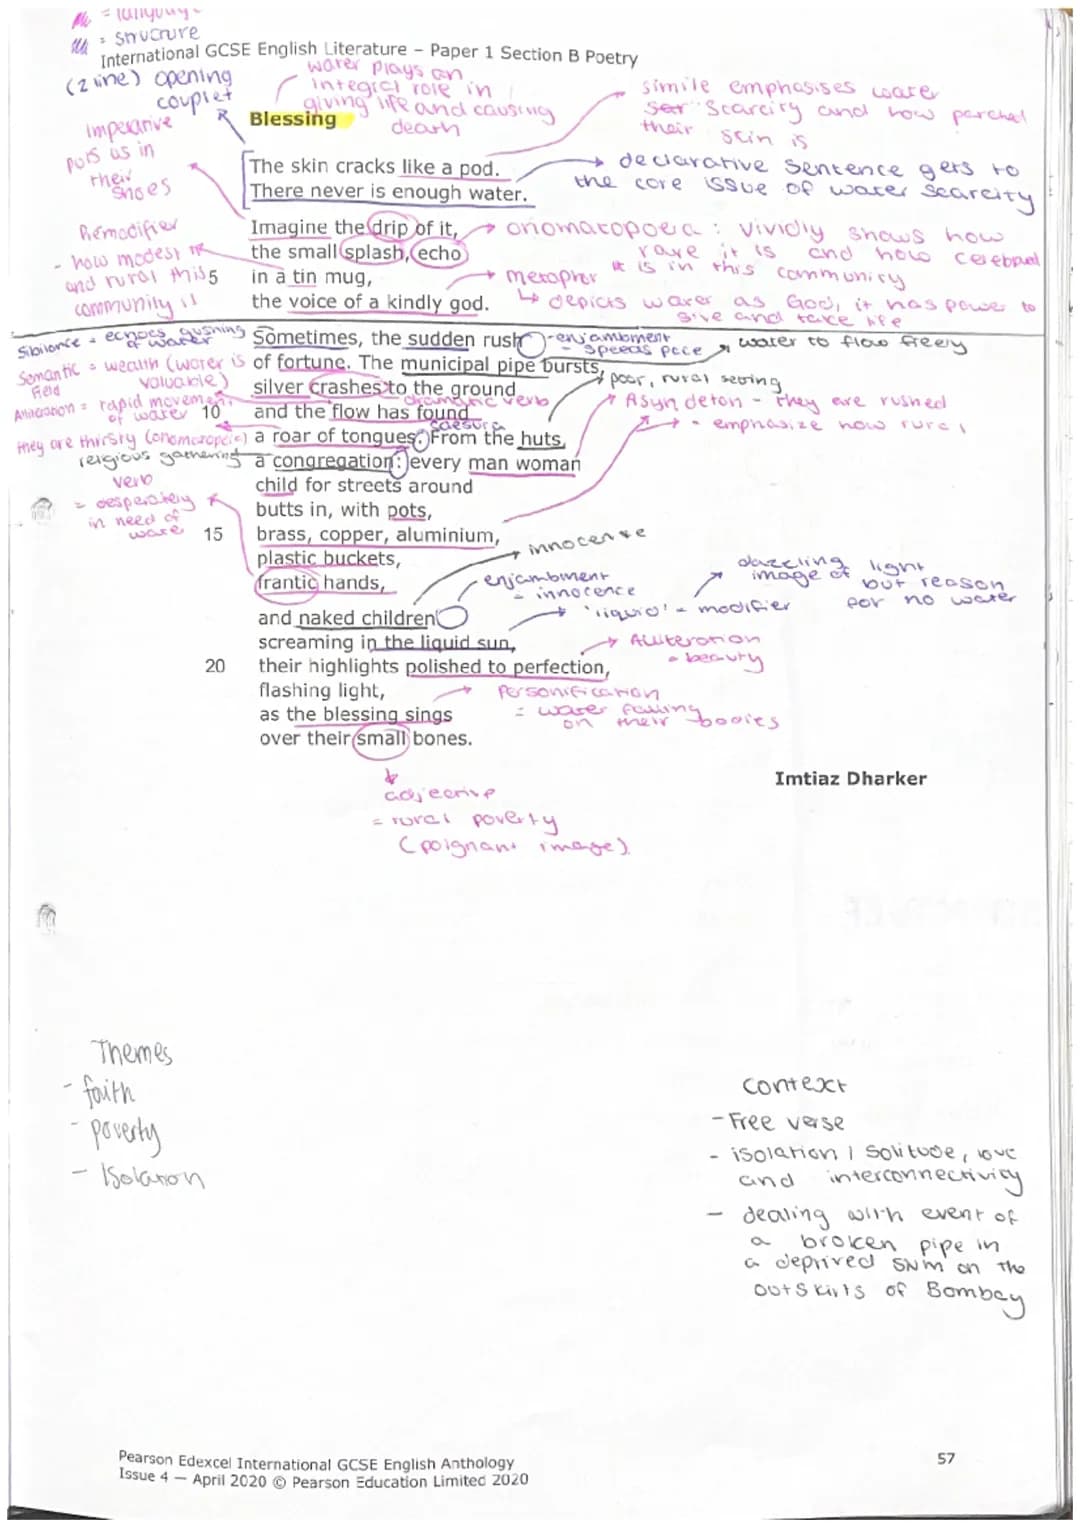 = language
= structure
International GCSE English Literature – Paper 1 Section B Poetry
(2 line) opening
couplet
water plays an
integral role in
giving life and causing
death
simile emphasises water
scarcity and how parched
their skin is
Blessing
imperative
puts us in
their
shoes
The skin cracks like a pod.
There never is enough water.
declarative sentence gets to
the core issue of water scarcity
Premodifier
- how modest
and rural this
community is
Imagine the drip of it,
the small splash, echo
5 in a tin mug,
the voice of a kindly god.
onomatopoea : vividly shows how
rare it is and how celebrated
it is in this community
metaphor
↳ depicts water as God, it has power to
give and take life
Sibilance = echoes gushing
of water
Semantic = wealth (water is
field valuable)
Alliteration = rapid movement
of water
they are thirsty (onomatopoeic)
religious gathering
verb
= desperately
in need of
water
Sometimes, the sudden rush
of fortune. The municipal pipe bursts,
silver crashes to the ground
10 and the flow has found
a roar of tongues. From the huts,
a congregation: every man woman
child for streets around
butts in, with pots,
15 brass, copper, aluminium,
plastic buckets,
frantic hands,
- enjambment
- speeds pace
water to flow freely
poor, rural setting
dramatic verb
caesura
Asyndeton - they are rushed
- emphasize how rural
innocence
enjambment
= innocence
'liquid' = modifier
dazzling light
image of but reason
for no water
and naked children
screaming in the liquid sun,
20 their highlights polished to perfection,
flashing light,
as the blessing sings
over their small bones.
Alliteration
= beauty
Personification
= water falling
on their bodies
Imtiaz Dharker
adjective
= rural poverty
(poignant image)
Themes
- faith
- poverty
- Isolation
context
- Free verse
- isolation / solitude, love
and interconnectivity
- dealing with event of
a broken pipe in
a deprived slum on the
outskirts of Bombay
Pearson Edexcel International GCSE English Anthology
Issue 4 – April 2020 © Pearson Education Limited 2020
57